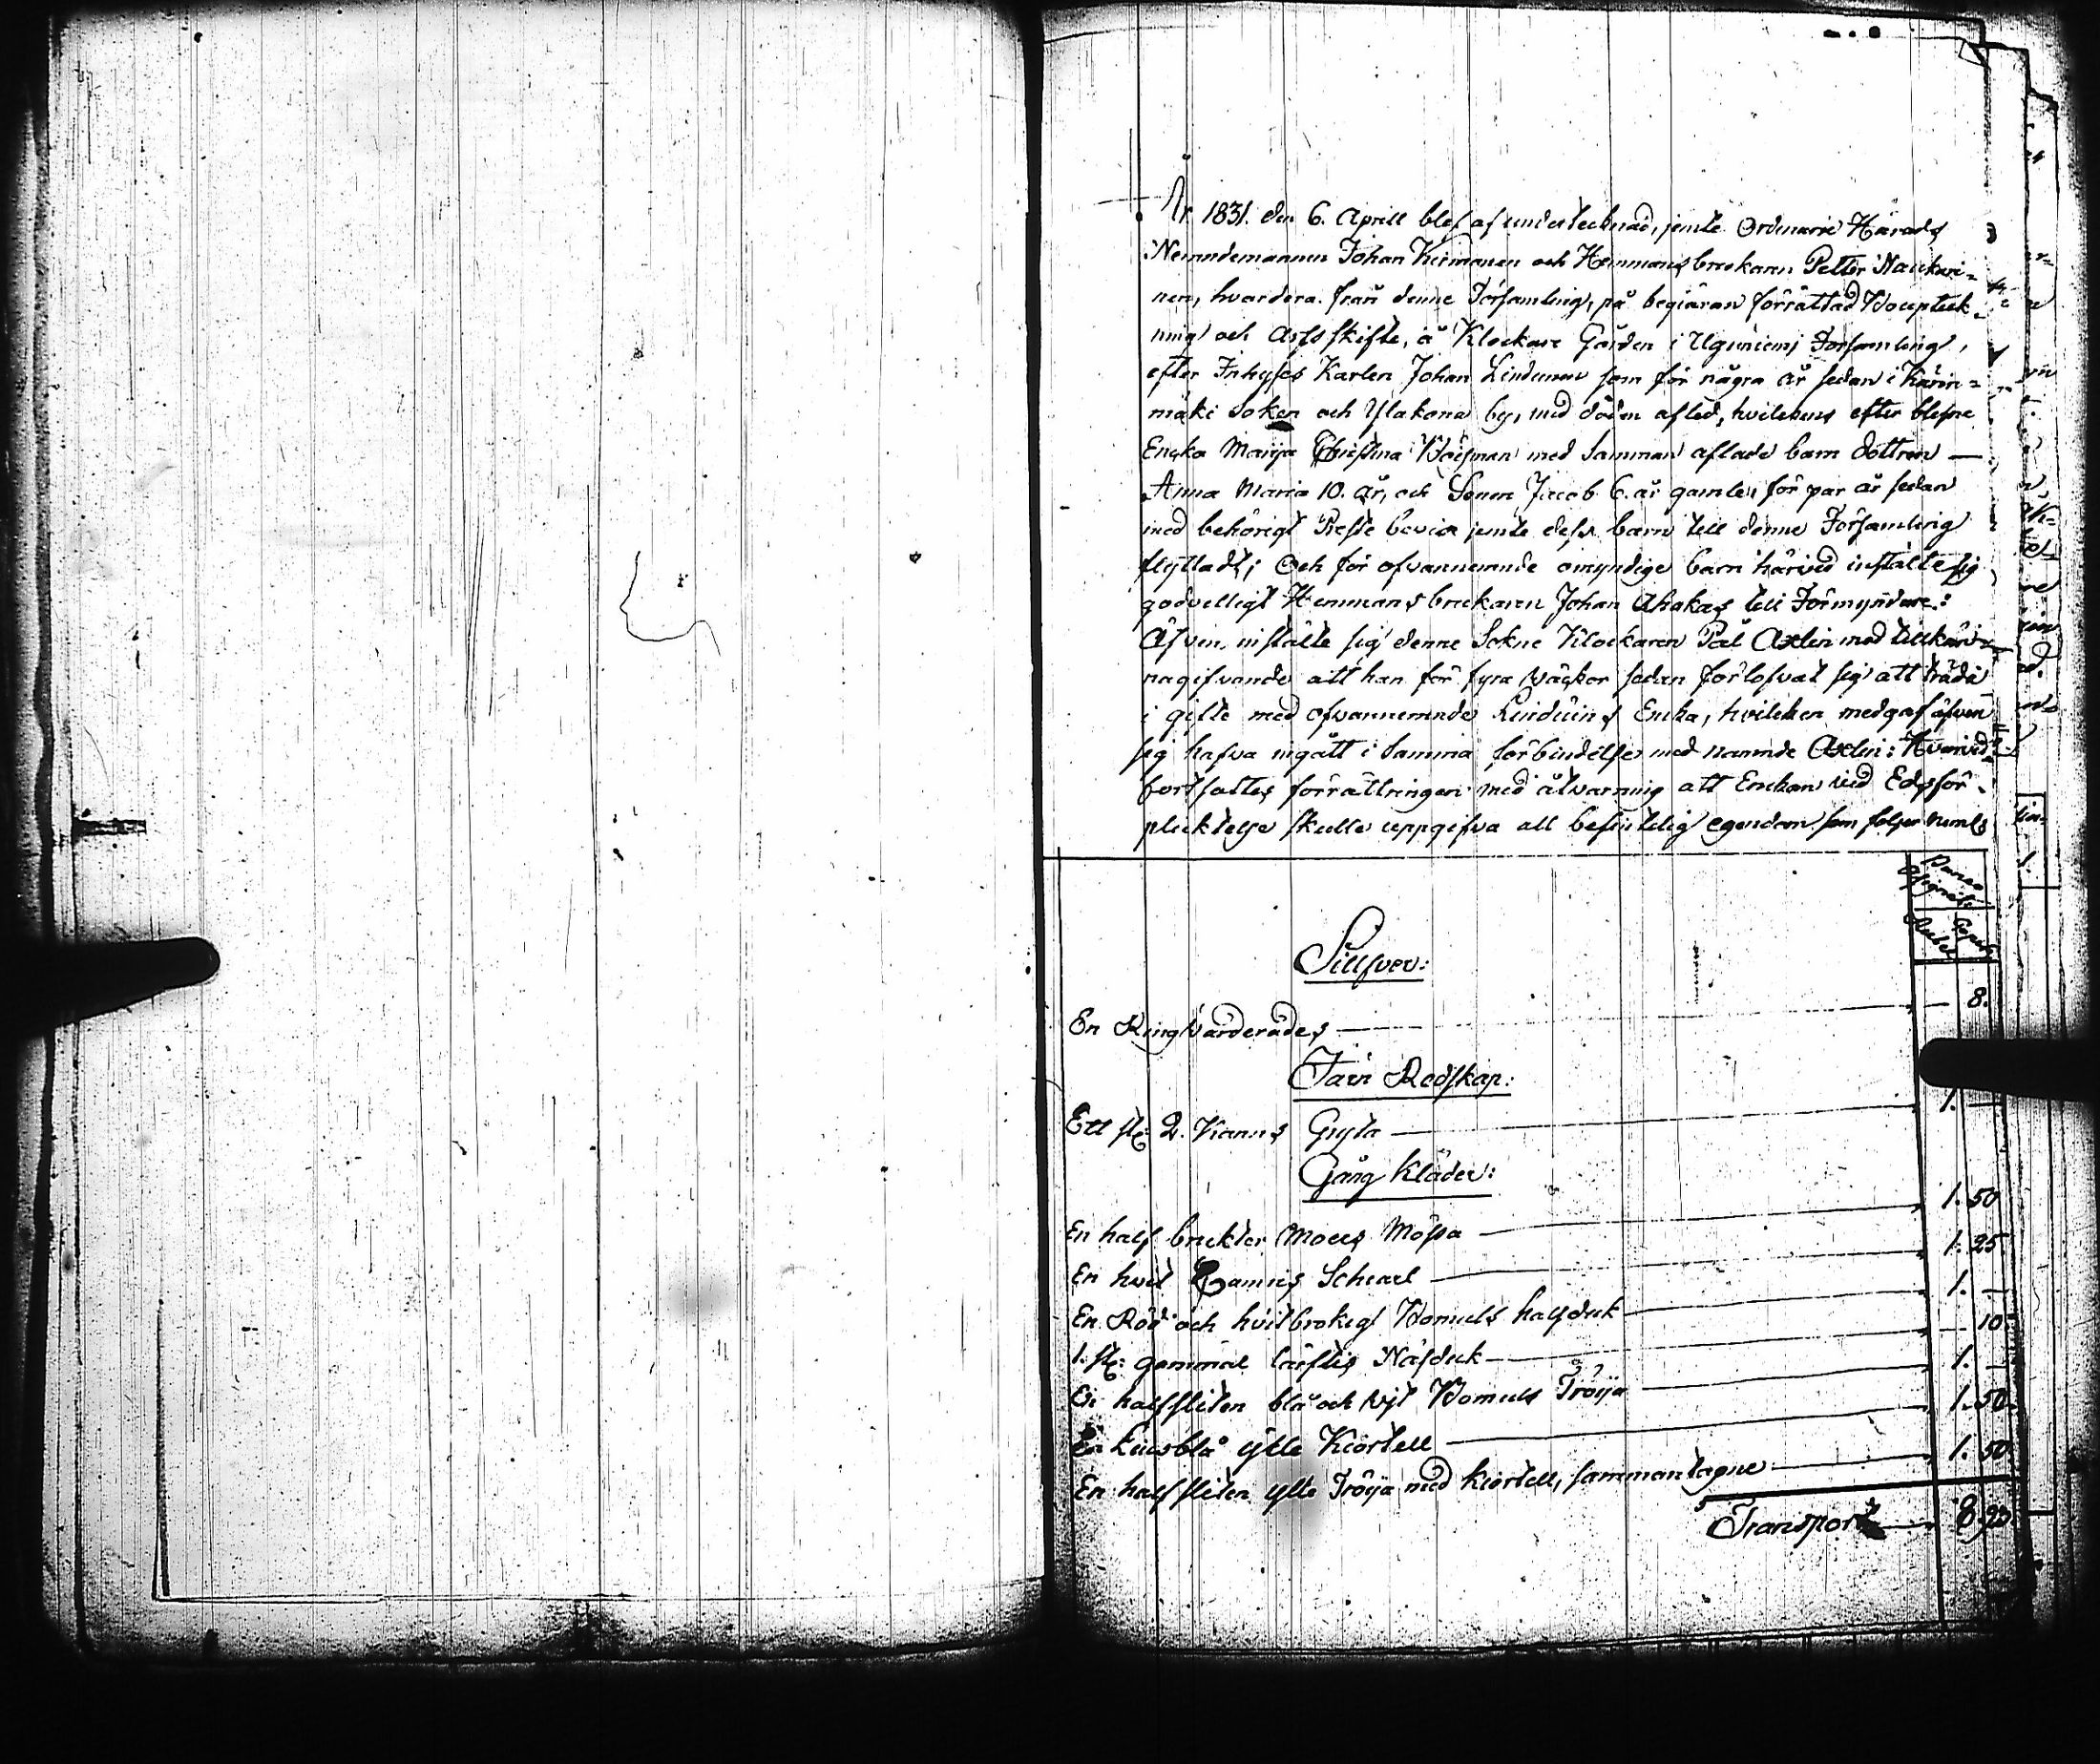 År 1831. den 6. Aprill blef af undertecknad, jemte Ordinarie Härads
Nemndemannen Johan Kirmanen och Hemmansbrukaren Petter Naukari=
nen, hvardera från denne Församling, på begiäran förrättad Bouptek
ning och Arfsskifte, å Klockare Gården i Uguniemi Församling,
efter Inhyses Karlen Johan Lindunen som för några år sedan i Kärin=
mäki Soken och Ylakona by, med döden afled, hvilckens efter blefne
Encka Maija Christina Woipman med Samman aflade barn dottren —
Anna Maria 10. år, och Sonen Jacob 6. år gamle, för par år sedan
med behörigt Preste bevis jemte dess barn till denne Församling
flyttadt; Och för ofvannemnde omyndige barn härvid instälte sig
godvilligt Hemmansbrukaren Johan Ahokas till Förmyndare:
Äfven instälte sig denne Sokne Klockaren Pål Axlin med tillkän=
nagifvande att han för fyra väckor sedan förlofvat sig att träda
i gifte med ofvannemnde Linduins Encka, hvilcken medgaf äfven
sig hafva ingått i Samma förbindelse med namnde Axlin: Hvarvid
fortsattes förrättningen med åtvarning att Enckan vid Edsför=
plicktelse skulle uppgifva all befintelig egendom som följer nemls
Banco
Assignat
Rubel Copek
Sillfver:
En Ring Värderades — 8.
Järn Redskap:
Ett st: 2. Kanns Gryta — 1. —
Gång Kläder:
En half bruckter Moers Mössa — 1. 50
En hvit Schearl — 1. 25
En Röd och hvitbrokigt Bomuls halsduk — 1. —
1. st: gammal lärftis Näsduk — 10.
En halfsliten blå och hvit Bomuls Tröija — 1. —
En Liusblå ylle Kiortell — 1. 50.
En halfsliten ylle Tröija med kiortell, sammantagne — 1. 50
Transport — 8. 93.